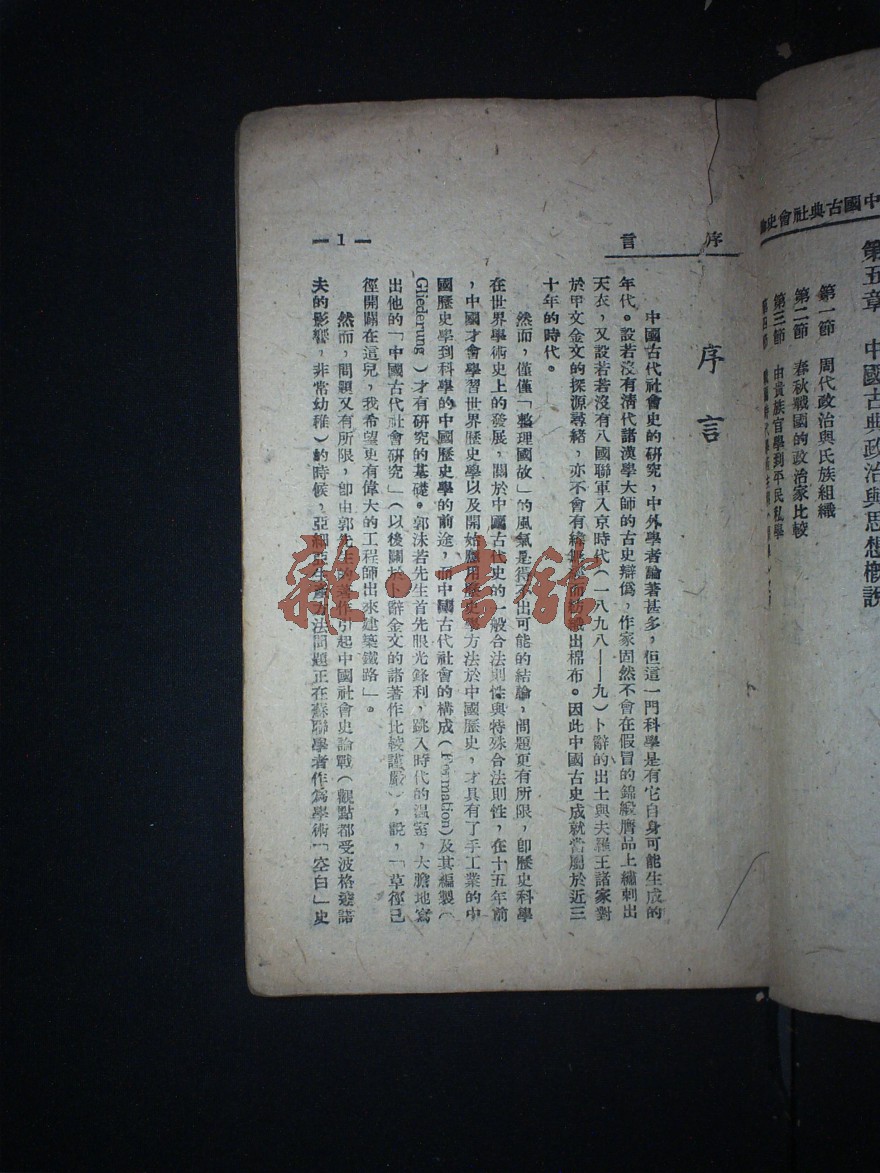 中國古典社會史
第五章　中國古典政治與思想概說
第一節　周代政治與民族組織
第二節　春秋戰國的政治家比較
第三節　由貴族官學到平民私學
序言
序言
中國古代社會史的研究，中外學者論著甚多，但這一門科學是有它自身可能生成的
年代。設若沒有淸代諸漢學大師的古史辯僞，作家固然不會在假冒的錦緞膺品上繡刺出
天衣，又設若若沒有八國聯軍入京時代（一八九八——九）卜辭的出土與夫羅王諸家對
於甲文金文的探源尋緒，亦不會有 出棉布。因此中國古史成就當屬於近三
十年的時代。
然而，僅僅「整理國故」的風氣是得不出可能的結論，問題更有所限，卽歷史科學
在世界學術史上的發展，關於中國古代史的一般合法則性與特殊合法則性，在十五年前
，中國才會學習世界歷史學以及開始應用歷史學方法於中國歷史，才具有了手工業的中
國歷史學到科學的中國歷史學的前途，而中國古代社會的構成（Formation)及其編製（
Gliederung）才有硏究的基礎。郭沫若先生首先眼光鋒利，跳入時代的溫室，大膽地寫
出他的「中國古代社會研究」（以後關於卜辭金文的諸著作比較謹嚴），說，「草徑已
徑開闢在這兒，我希望更有偉大的工程師出來建築鐵路」。
然而，問題又有所限，卽由郭先生的著作引起中國社會史論戰（觀點都受波格達諾
夫的影響，非常幼稚）的時候，亞細亞生產方法問題正在蘇聯學者作爲學術「空白」史
—1—
雜·書館